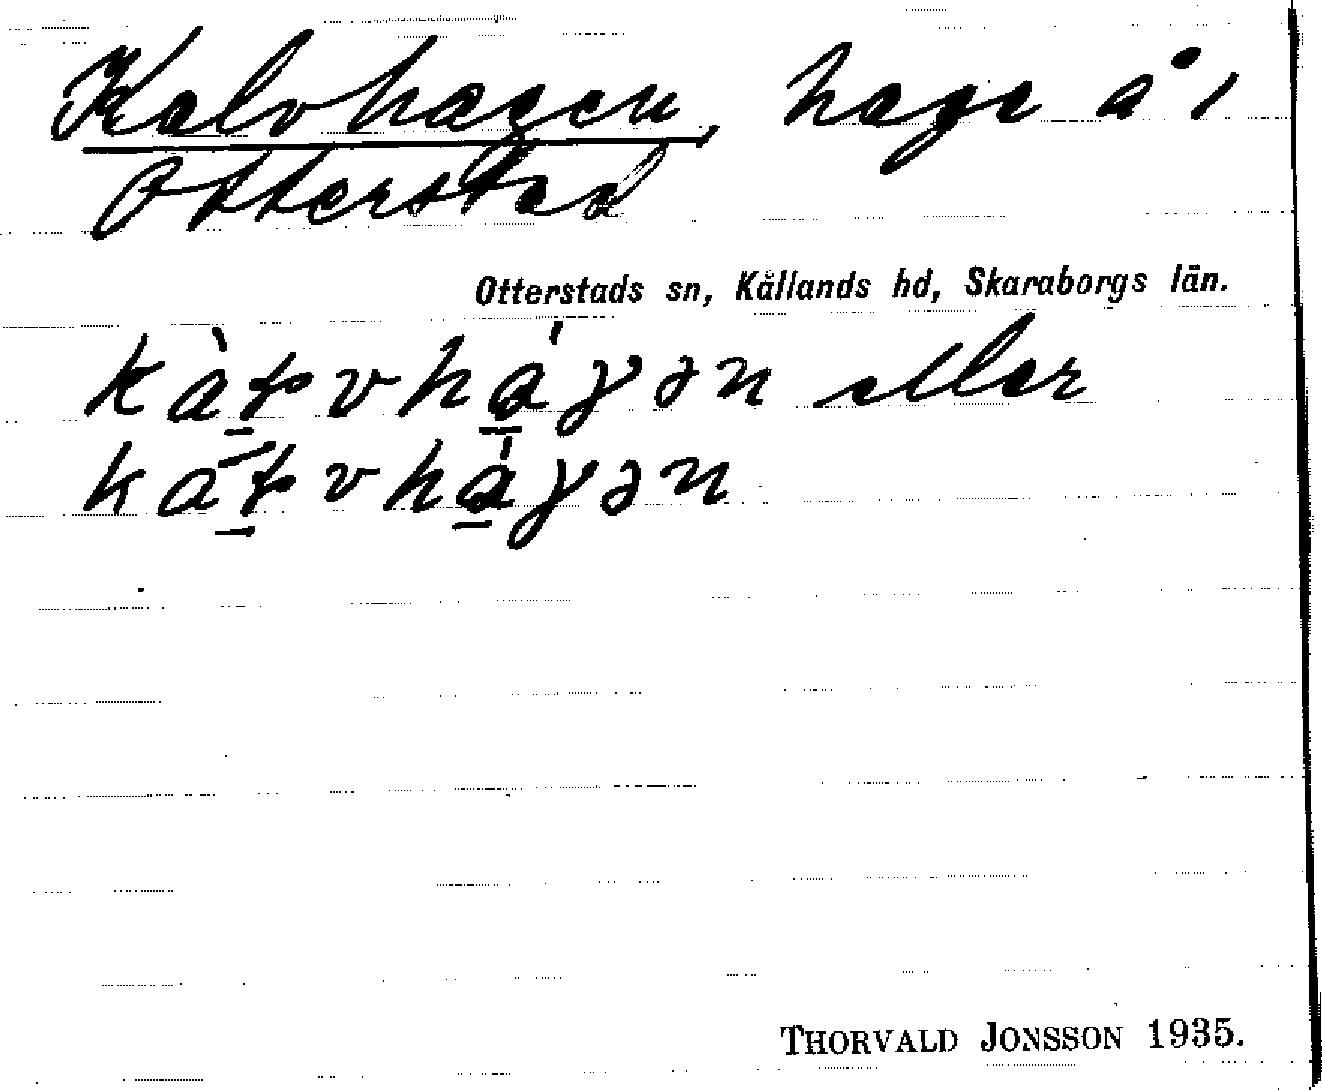 Kalvhagen, hage å 1
Otterstad
Otterstads sn, Kållands hd, Skaraborgs län.
kàłvhágən eller
kałvhágən
THORVALD JONSSON 1935.